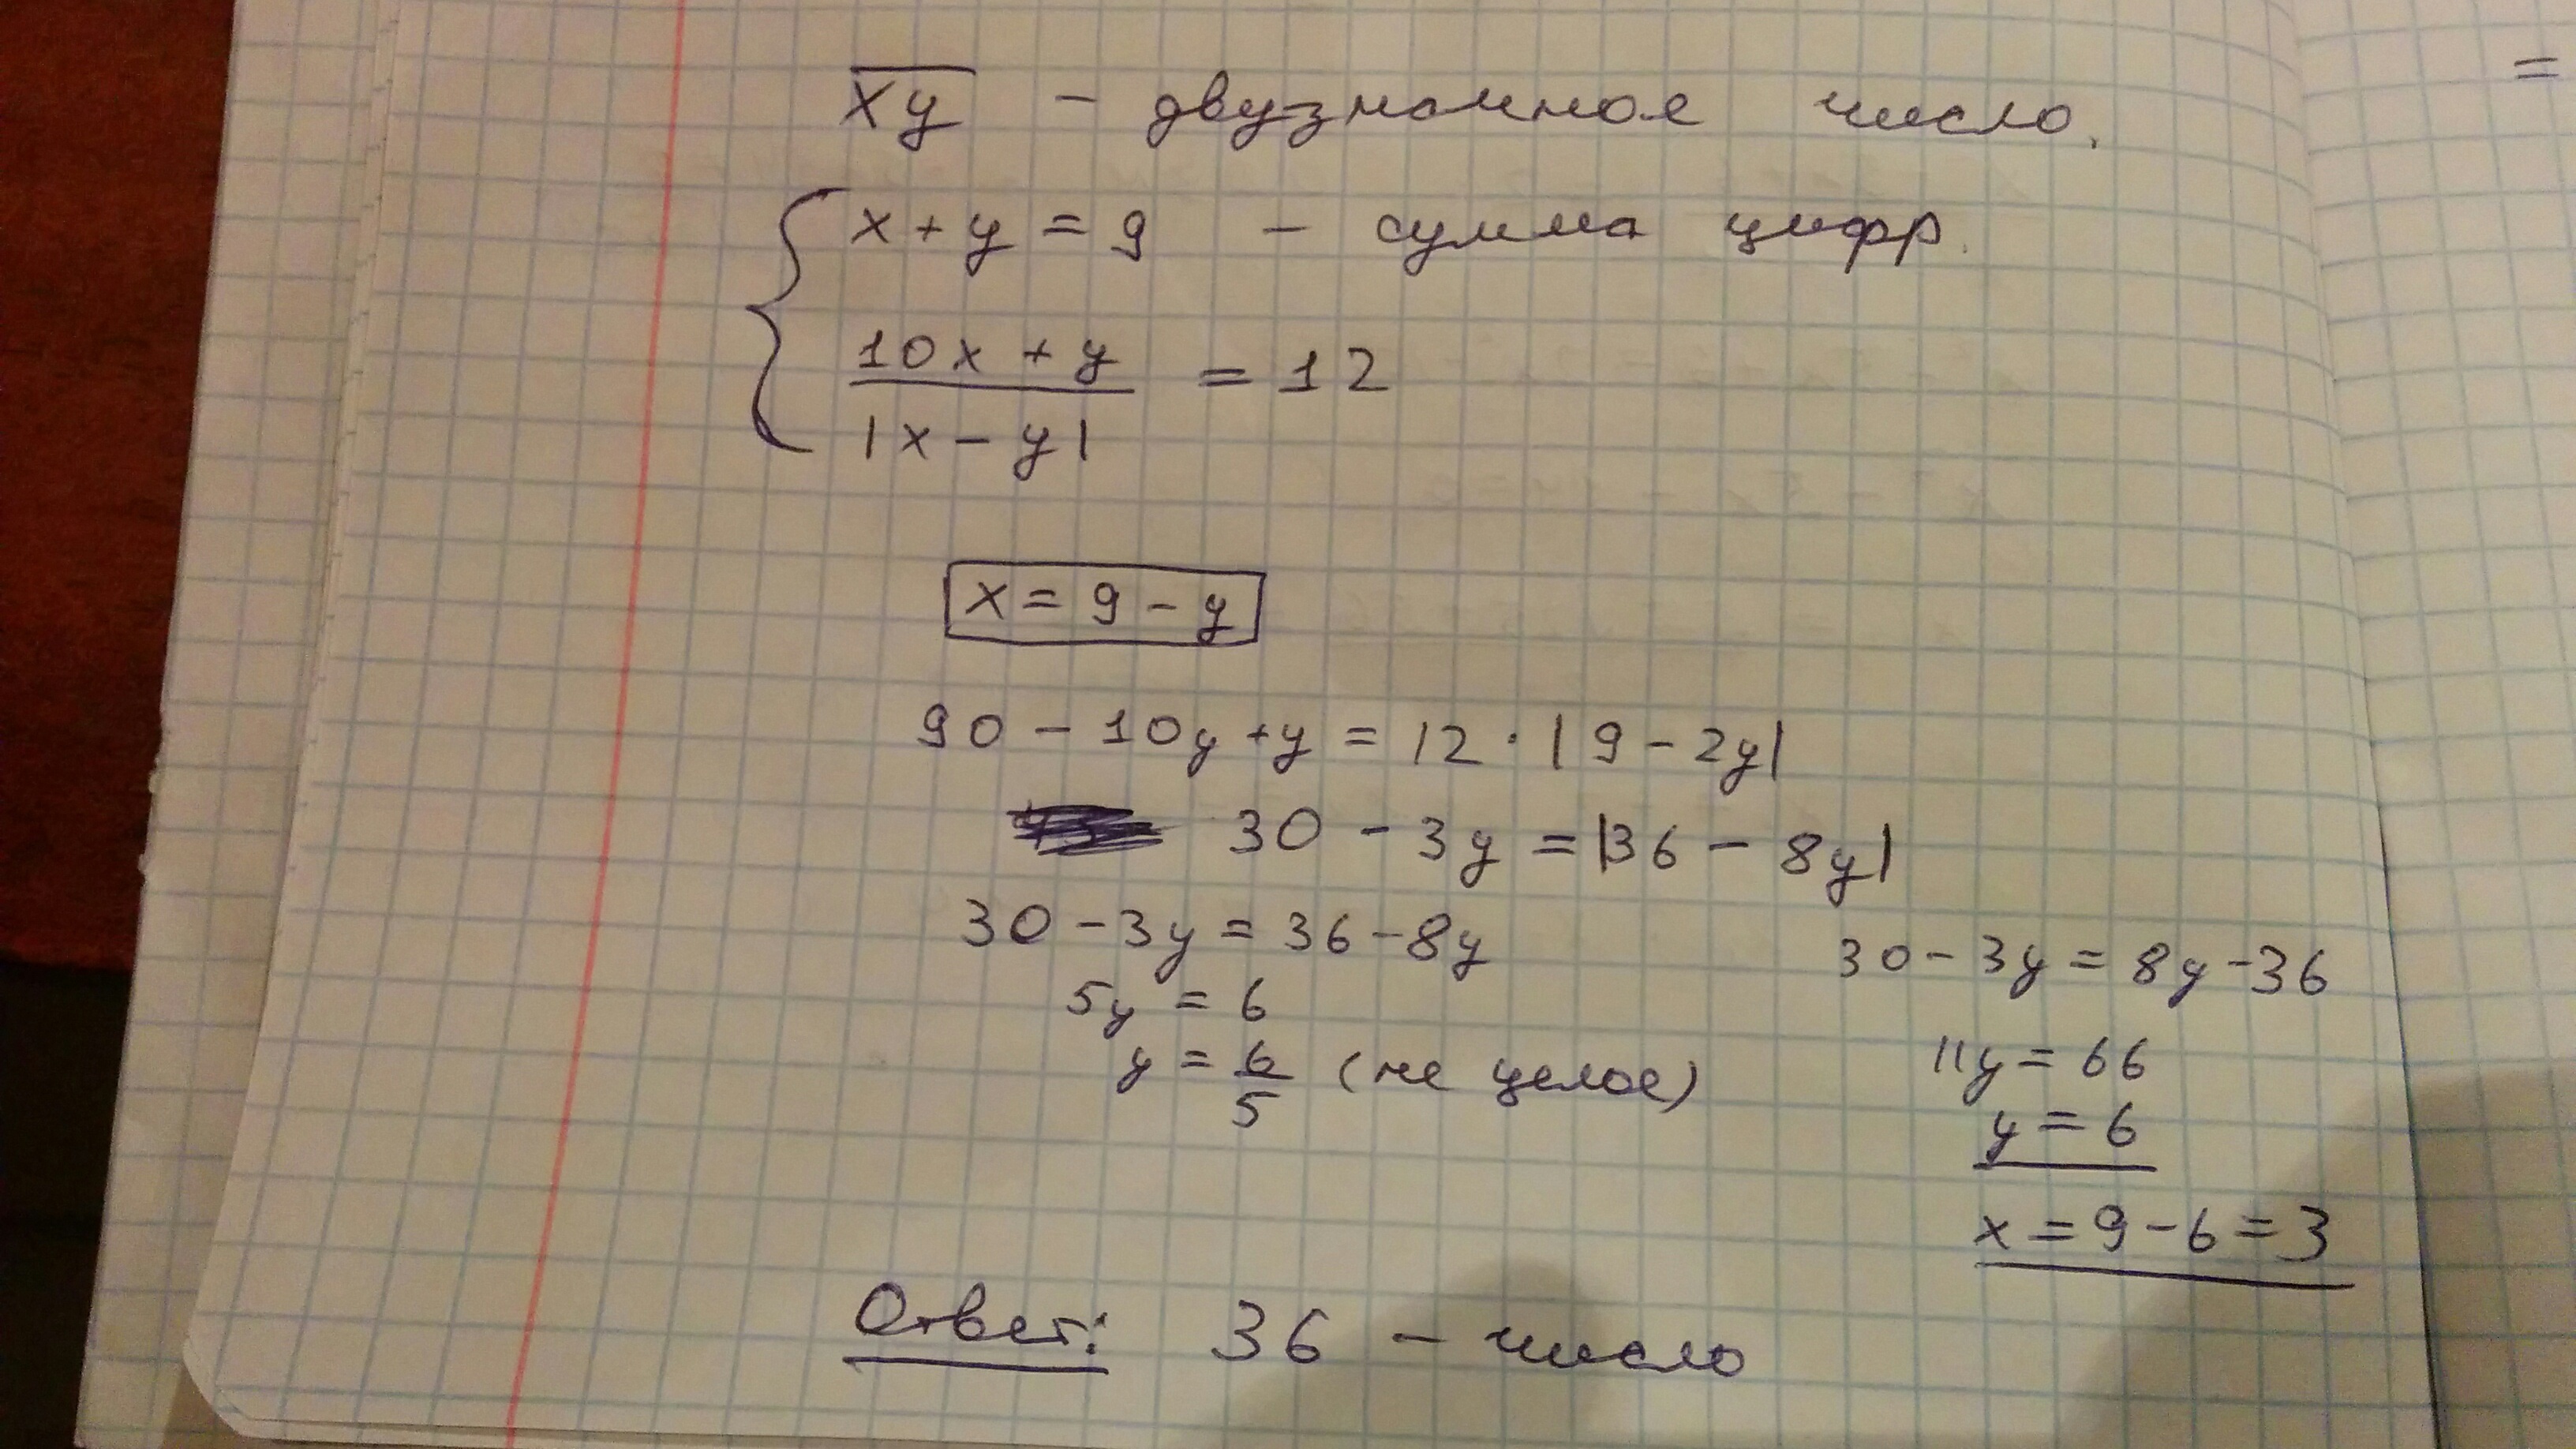 xy - двузначное число.
x + y = 9 - сумма цифр.
10x + y
= 12
|x - y|
x = 9 - y
90 - 10y + y = 12 · |9 - 2y|
30 - 3y = |36 - 8y|
30 - 3y = 36 - 8y
5y = 6
y = 6/5 (не целое)
30 - 3y = 8y - 36
11y = 66
y = 6
x = 9 - 6 = 3
Ответ: 36 - число
=